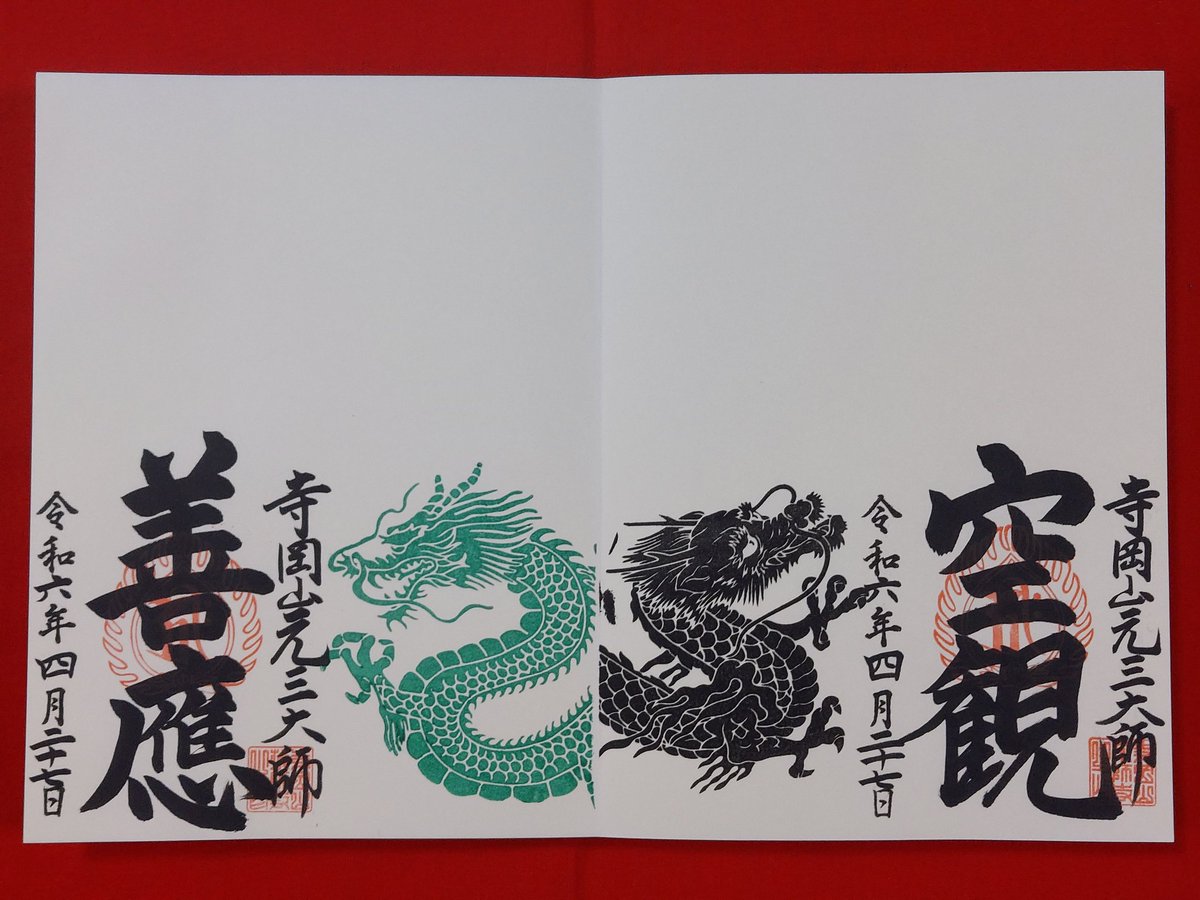 寺岡山元三大師
空観
令和六年四月二十七日
寺岡山元三大師
善應
令和六年四月二十七日